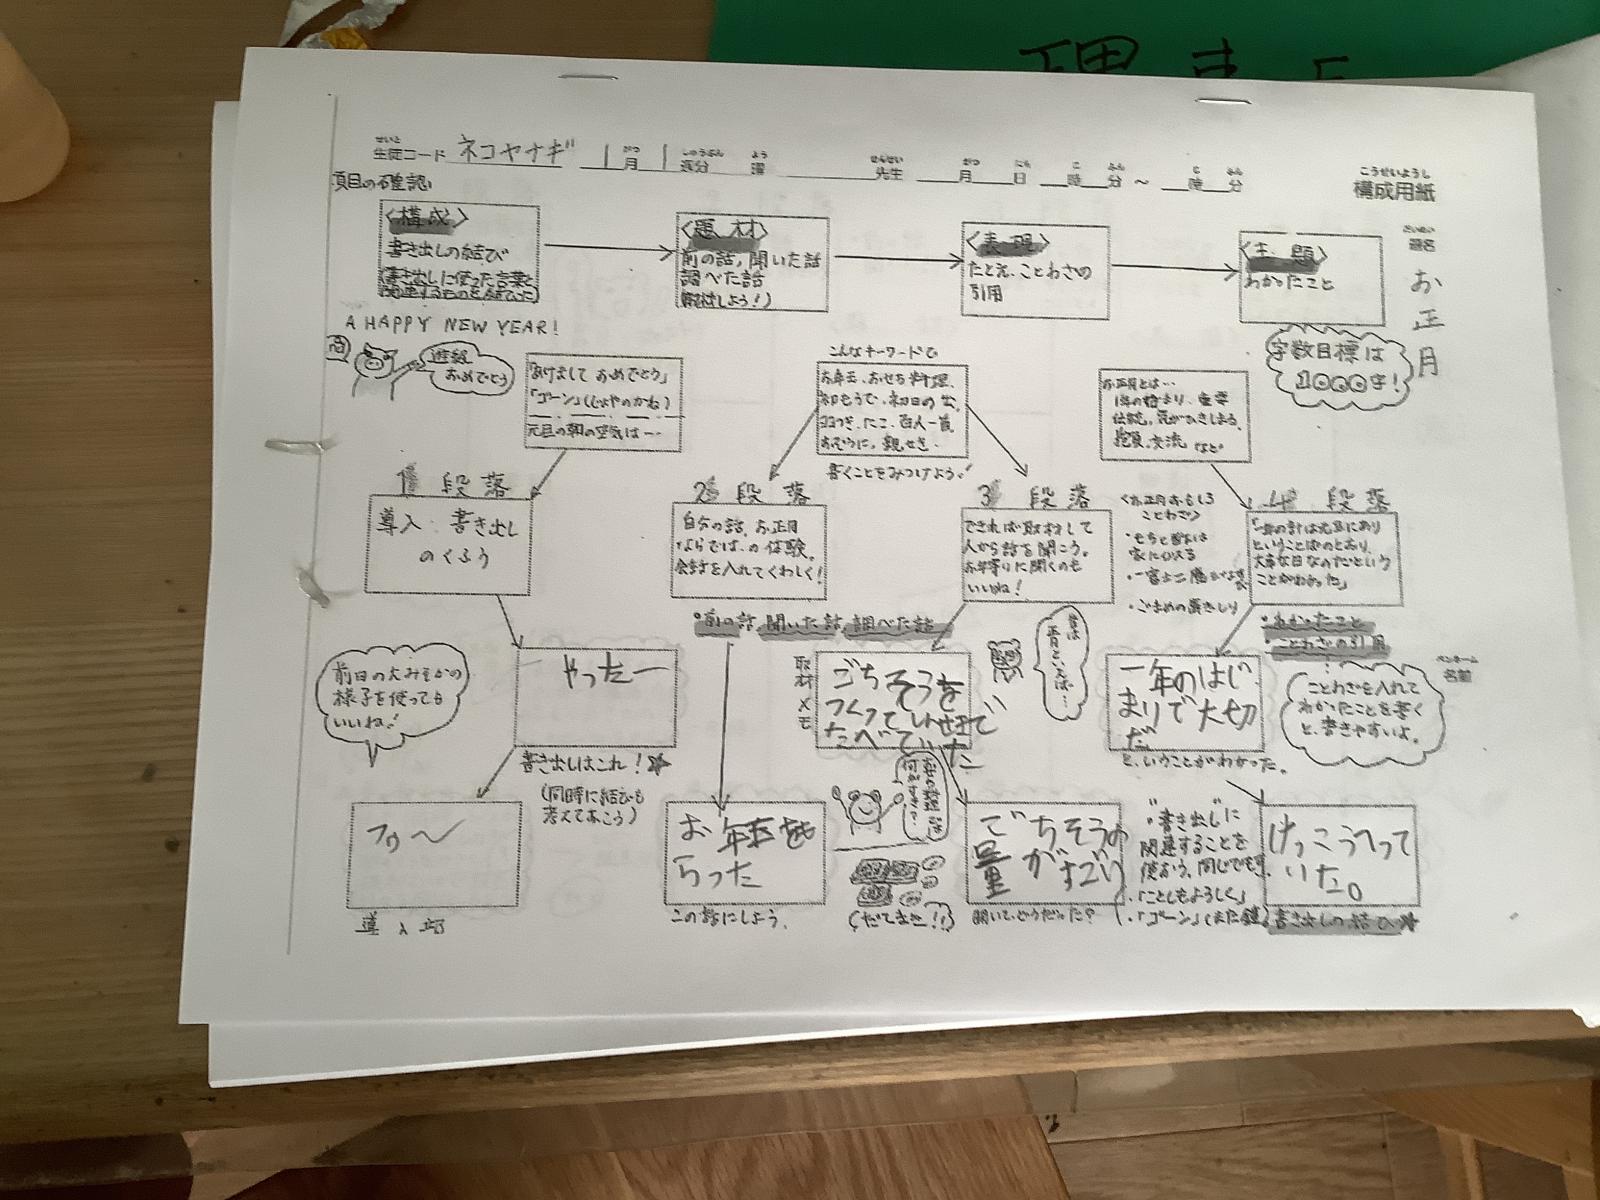 せいと
生徒コード ネコヤナギ 1月1週分 曜 先生 月 日 時 分 ～ 時 分
こうせいようし
構成用紙
項目の確認
〈構成〉
書き出しの結び
(書き出しに使った言葉と
関連するものを使った)
〈題材〉
前の話，聞いた話
調べた話
(取材しよう！)
〈表現〉
たとえ、ことわざの
引用
〈主題〉
わかったこと
題名
お正月
字数目標は
1000字！
A HAPPY NEW YEAR!
進級
おめでとう
「あけまして おめでとう」
「ゴーン」(じょやのかね)
元旦の朝の空気は…
こんなキーワードで
お年玉、おせち料理、
初もうで、初日の出、
コマつき、たこ、百人一首、
おぞうに、親せき…
書くことをみつけよう！
お正月とは…
1年の始まり、重要
伝統、気がひきしまる、
抱負、交流 など。
1 段落
導入 書き出し
のくふう
2 段落
自分の話。お正月
ならでは、の体験。
会話を入れてくわしく！
3 段落
できれば取材して
人から話を聞こう。
お年寄りに聞くのも
いいね！
〈お正月おもしろ
ことわざ〉
・ごまめの歯ぎしり
4 段落
「一年の計は元旦にあり
ということばのとおり、
大事な日なのだという
ことがわかった」
・前の話,聞いた話,調べた話
・わかったこと
・ことわざの引用
前日の大みそかの
様子を使っても
いいね！
やったー
書き出しはこれ！★
(同時に結びも
考えておこう)
取材メモ
ごちそうを
つくって
たべていた
昔は
正月といえば…
一年のはじ
まりで大切
だ
と、いうことがわかった。
ことわざを入れて
わかったことを書く
と、書きやすいよ。
ペンネーム
名前
フゥ～
導入部
お年玉をも
らった
この話にしよう。
お正月料理では
何がすき？
(だてまき！！)
ごちそうの
量がすごい
聞いて、どうだった？
・"書き出し"に
関連することを
使おう、同じでも可。
・「ことしもよろしく」
・「ゴーン」(また鐘)
けっこうへって
いた。
書き出しの結び★